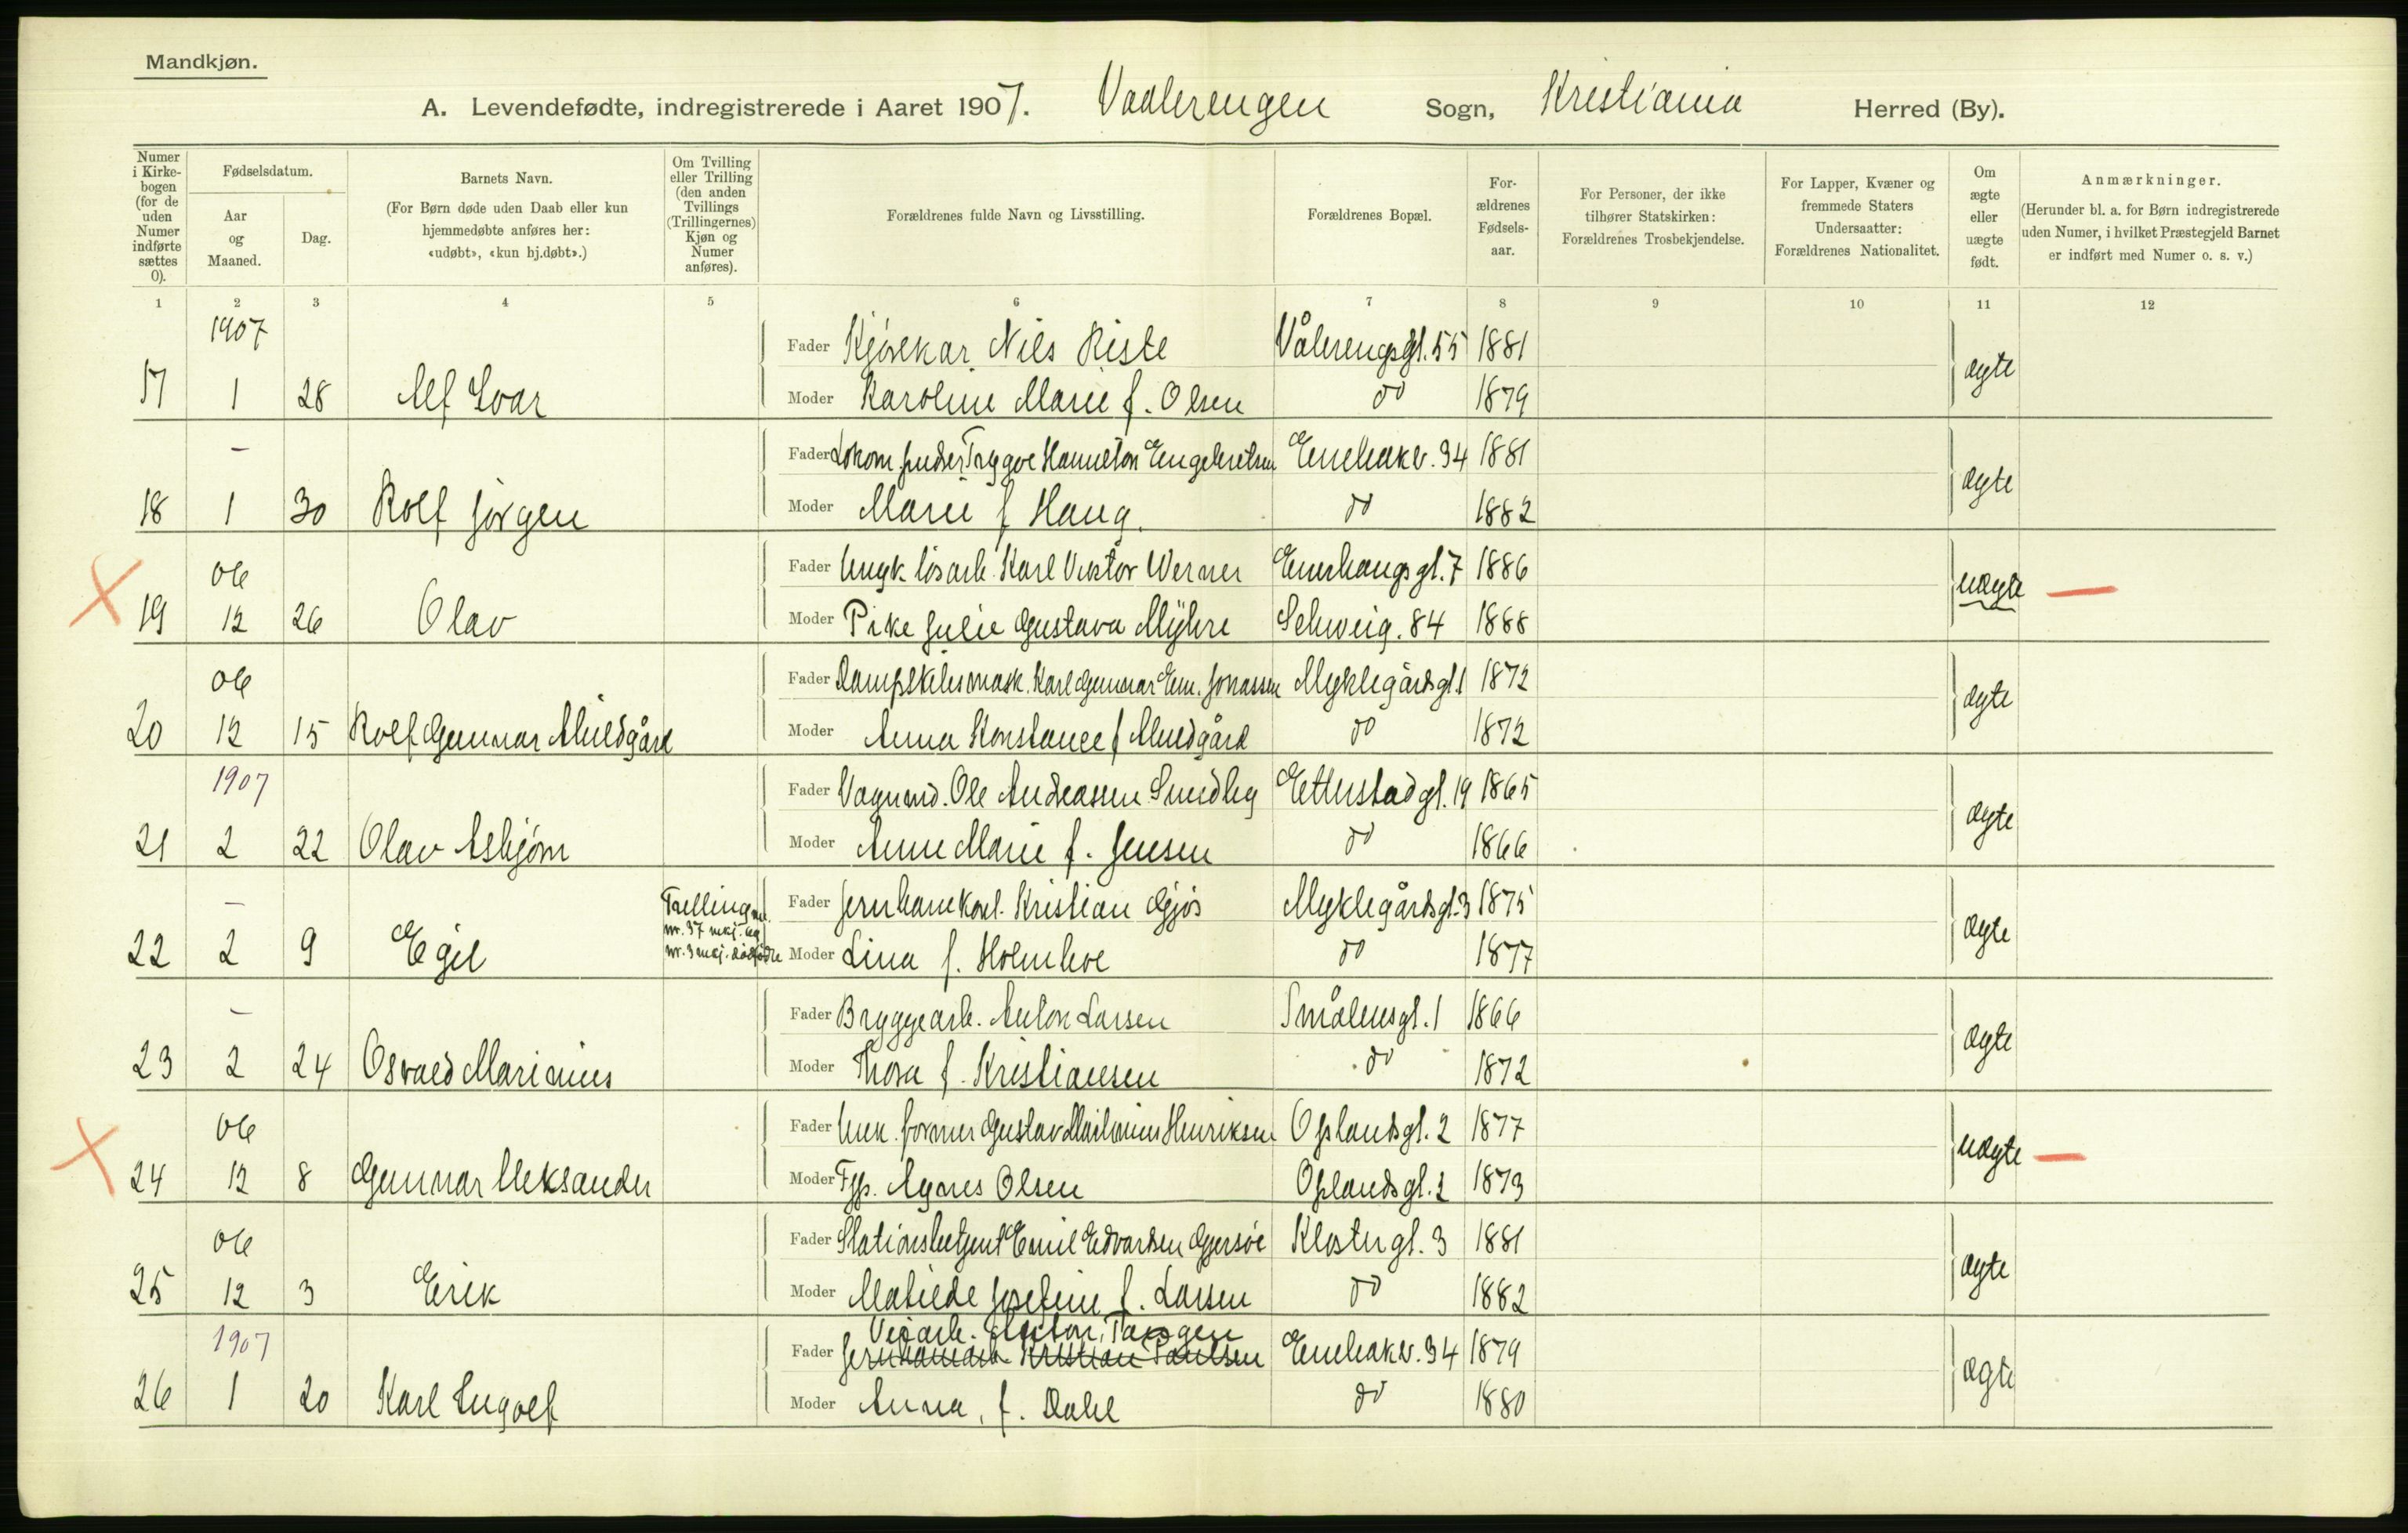 Mandkjøn.
A. Levendefødte, indregistrerede i Aaret 1907. Vaalerengen Sogn, Kristiania Herred (By).
Numer i Kirke-bogen (for de uden Numer indførte sættes 0).
Fødselsdatum.
Aar og Maaned.
Dag.
Barnets Navn.
(For Børn døde uden Daab eller kun hjemmedøbte anføres her: «udøbt», «kun hj.døbt».)
Om Tvilling eller Trilling (den anden Tvillings (Trillingernes) Kjøn og Numer anføres).
Forældrenes fulde Navn og Livsstilling.
Forældrenes Bopæl.
For-ældrenes Fødsels-aar.
For Personer, der ikke tilhører Statskirken: Forældrenes Trosbekjendelse.
For Lapper, Kvæner og fremmede Staters Undersaatter: Forældrenes Nationalitet.
Om ægte eller uægte født.
Anmærkninger.
(Herunder bl. a. for Børn indregistrerede uden Numer, i hvilket Præstegjeld Barnet er indført med Numer o. s. v.)
1 2 3 4 5 6 7 8 9 10 11 12
1907 Fader Kjørekar Nils Riste Vålerengsgt. 55 1881
17 1 28 Alf Ivar Moder Karoline Marie f. Olsen do 1879 ægte
- Fader Lokom.pudser Trygve Hamilton Engebretsen Enebakv. 34 1881
18 1 30 Rolf Jörgen Moder Marie f Haug. do 1882 ægte
06 Fader Ungk. løsarb. Karl Viktor Werner Enerhaugsgt. 7 1886
19 12 26 Olav Moder Pike Julie Gustava Myhre Schweig. 84 1888 uægte —
06 Fader Dampskibsmask. Karl Gunnar Em. Jonassen Myklegårdsgt. 1 1872
20 12 15 Rolf Gunnar Muldgård Moder Anna Konstance f Muldgård do 1872 ægte
1907 Fader Vognmd. Ole Andreassen Smedby Etterstadgt. 19 1865
21 2 22 Olav Asbjørn Moder Anne Marie f. Jensen do 1866 ægte
- Trilling m. nr. 37 nkj. og nr. 3 mkj. dødfødte Fader Jernbanekonst. Kristian Gjøs Myklegårdsgt. 3 1875
22 2 9 Egil Moder Lina f. Holmboe do 1877 ægte
- Fader Bryggearb. Anton Larsen Smålensgt. 1 1866
23 2 24 Osvald Marinius Moder Thora f. Kristiansen do 1872 ægte
06 Fader Unk. former Gustav Mathinius Henriksen Oplandsgt. 2 1877
24 12 8 Gunnar Aleksander Moder Fyp. Agnes Olsen Oplandsgt. 2 1873 uægte —
06 Fader Stationsbetjent Emil Edvardsen Gjersøe Klostergt. 3 1881
25 12 3 Erik Moder Matilde Josefine f. Larsen do 1882 ægte
Veiarb.
1907 Fader Kristian Paulsen Enebakv. 34 1879
26 1 20 Karl Ingolf Moder Anna, f. Dahl do 1880 ægte